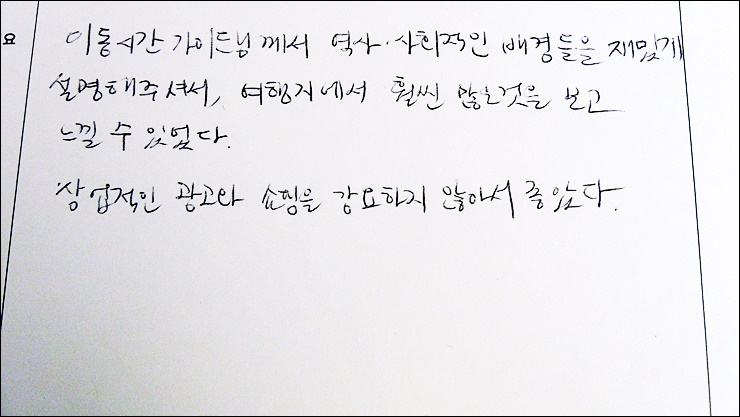 요
이동시간 가이드님께서 역사·사회적인 배경들을 재밌게
설명해주셔서, 여행지에서 훨씬 많은것을 보고
느낄 수 있었다.
상업적인 광고와 쇼핑을 강요하지 않아서 좋았다.